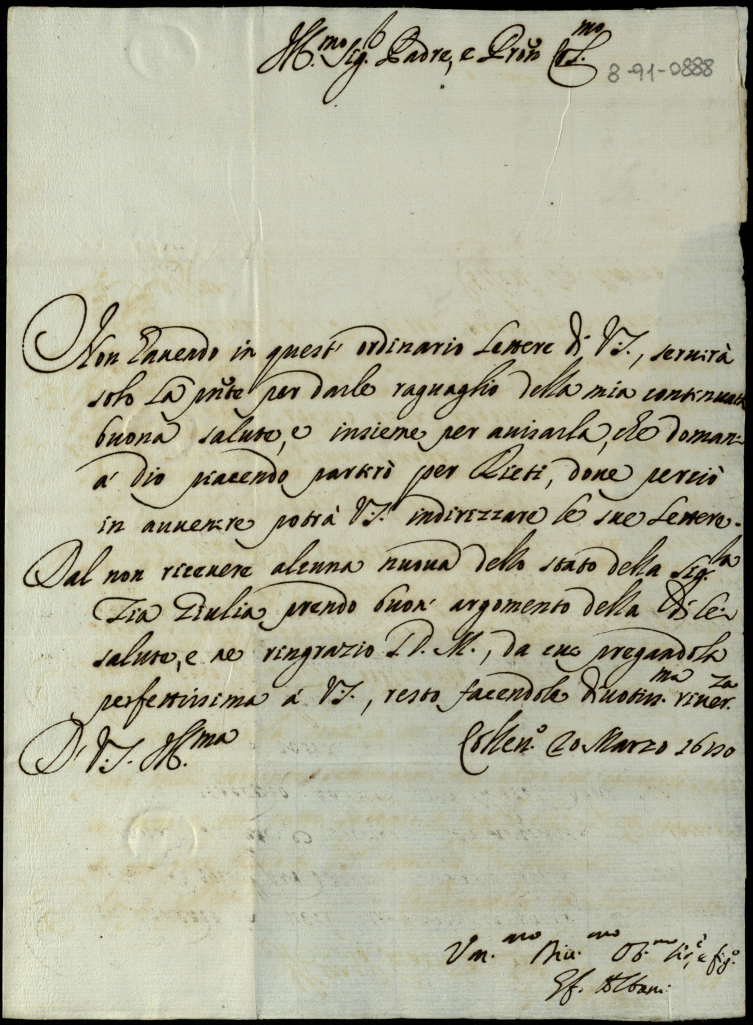 Ill.mo Sig.r Padre, e Prôn
8-91-0888
Non havendo in quest' ordinario Lettere di V.S., servirà
solo La pñte per darle raguaglio della mia continuata
buona salute, e insieme per avisarla, che doman-
à Dio piacendo partirò per Rieti, dove perciò
in avvenire potrà V.S. indirizzare le sue Lettere.
Dal non ricevere alcuna nuova dello stato della Sig.ra
Zia Giulia prendo buon argomento della di lei
salute, e ne ringrazio S.D.M., da cui pregandola
perfettissima à V.S., resto facendole divotiss.ma river.za
Di V.S. Ill.ma
20 Marzo
Um.mo ob.mo fig.o
Albani